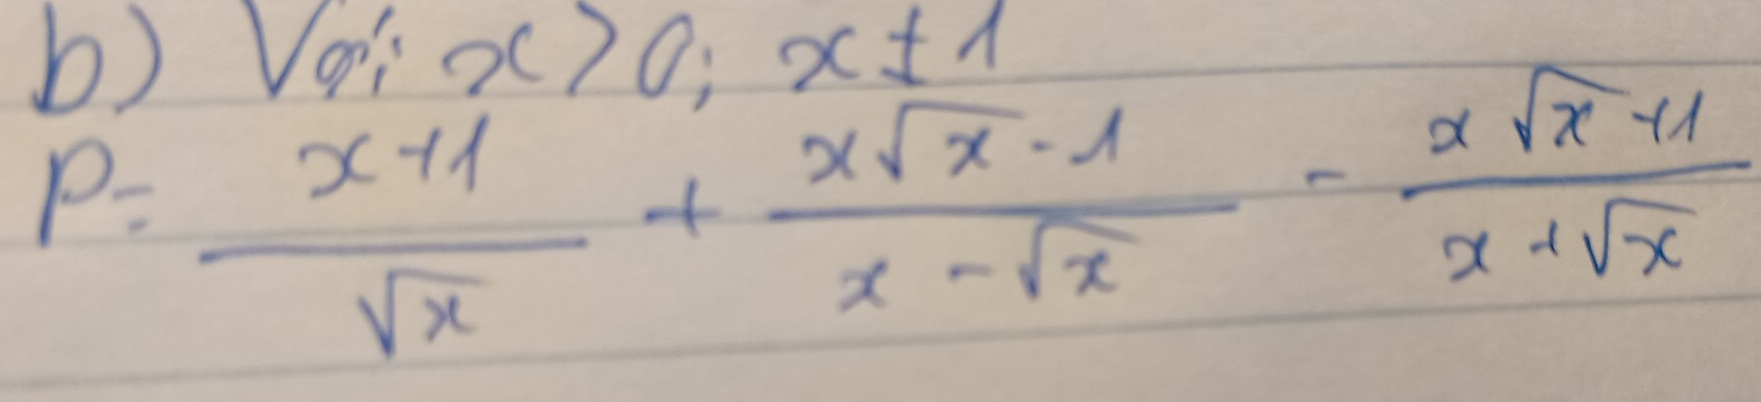 b) Với x > 0; x ≠ 1
P = \frac{x+1}{\sqrt{x}} + \frac{x\sqrt{x}-1}{x-\sqrt{x}} - \frac{x\sqrt{x}+1}{x+\sqrt{x}}